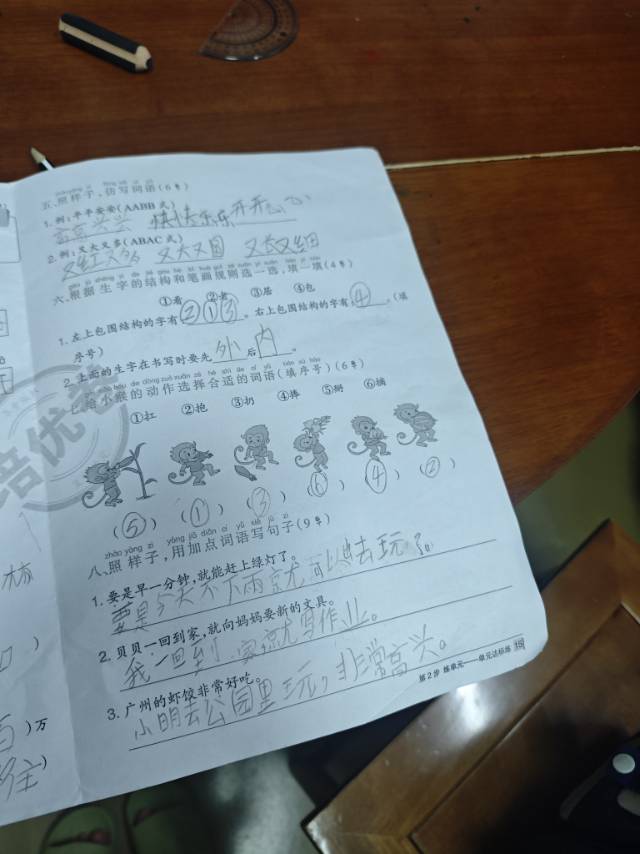 五、照样子,仿写词语(6分)
1. 例:平平安安(AABB 式)
高高兴兴 快快乐乐 开开心心
2. 例:又大又多(ABAC 式)
又红又多 又大又圆 又长又细
六、根据生字的结构和笔画规则选一选,填一填(4分)
①看 ②者 ③居 ④包
1. 左上包围结构的字有②①③。右上包围结构的字有④。(填
序号)
2. 上面的生字在书写时要先外后内。
七、给小猴的动作选择合适的词语(填序号)(6分)
①扛 ②抱 ③扔 ④捧 ⑤掰 ⑥摘
(⑤) (①) (③) (⑥) (④) (②)
zhào yàng zi yòng jiā diǎn cí yǔ xiě jù zi
八、照样子,用加点词语写句子(9分)
1. 要是早一分钟,就能赶上绿灯了。
要是今天不下雨就可以去玩了。
2. 贝贝一回到家,就向妈妈要新的文具。
我一回到家就写作业。
3. 广州的虾饺非常好吃。
小明去公园里玩,非常高兴。
第2步 练单元——单元达标练
培优卷
)万